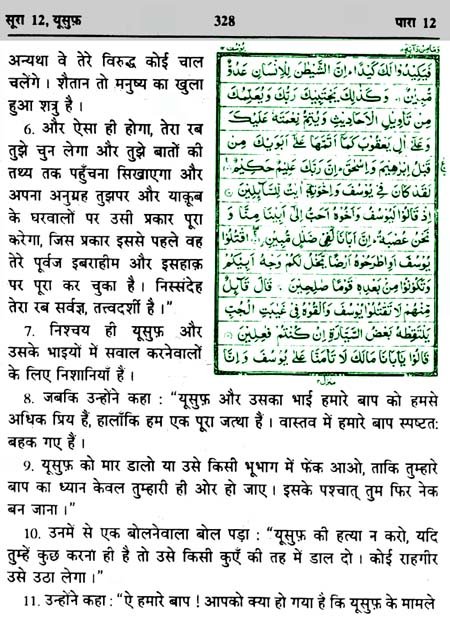 सूरा 12, यूसुफ़ 328 पारा 12
अन्यथा वे तेरे विरुद्ध कोई चाल
चलेंगे । शैतान तो मनुष्य का खुला
हुआ शत्रु है ।
6. और ऐसा ही होगा, तेरा रब
तुझे चुन लेगा और तुझे बातों की
तथ्य तक पहुँचना सिखाएगा और
अपना अनुग्रह तुझपर और याक़ूब
के घरवालों पर उसी प्रकार पूरा
करेगा, जिस प्रकार इससे पहले वह
तेरे पूर्वज इबराहीम और इसहाक़
पर पूरा कर चुका है । निस्संदेह
तेरा रब सर्वज्ञ, तत्त्वदर्शी है ।"
7. निश्चय ही यूसुफ़ और
उसके भाइयों में सवाल करनेवालों
के लिए निशानियाँ हैं ।
فَيَكِيْدُوْا لَكَ كَيْدًا ۗ اِنَّ الشَّيْطٰنَ لِلْاِنْسَانِ عَدُوٌّ
مُّبِيْنٌ ۞ وَكَذٰلِكَ يَجْتَبِيْكَ رَبُّكَ وَيُعَلِّمُكَ
مِنْ تَاْوِيْلِ الْاَحَادِيْثِ وَيُتِمُّ نِعْمَتَهٗ عَلَيْكَ
وَعَلٰٓى اٰلِ يَعْقُوْبَ كَمَآ اَتَمَّهَا عَلٰٓى اَبَوَيْكَ مِنْ
قَبْلُ اِبْرٰهِيْمَ وَاِسْحٰقَ ۗ اِنَّ رَبَّكَ عَلِيْمٌ حَكِيْمٌ ۞
لَقَدْ كَانَ فِيْ يُوْسُفَ وَاِخْوَتِهٖٓ اٰيٰتٌ لِّلسَّآئِلِيْنَ ۞
اِذْ قَالُوْا لَيُوْسُفُ وَاَخُوْهُ اَحَبُّ اِلٰٓى اَبِيْنَا مِنَّا وَ
نَحْنُ عُصْبَةٌ ۗ اِنَّ اَبَانَا لَفِيْ ضَلٰلٍ مُّبِيْنٍ ۞ اقْتُلُوْا
يُوْسُفَ اَوِ اطْرَحُوْهُ اَرْضًا يَّخْلُ لَكُمْ وَجْهُ اَبِيْكُمْ
وَتَكُوْنُوْا مِنْۢ بَعْدِهٖ قَوْمًا صٰلِحِيْنَ ۞ قَالَ قَآئِلٌ
مِّنْهُمْ لَا تَقْتُلُوْا يُوْسُفَ وَاَلْقُوْهُ فِيْ غَيٰبَتِ الْجُبِّ
يَلْتَقِطْهُ بَعْضُ السَّيَّارَةِ اِنْ كُنْتُمْ فٰعِلِيْنَ ۞
قَالُوْا يٰٓاَبَانَا مَالَكَ لَا تَاْمَنَّا عَلٰى يُوْسُفَ وَاِنَّا
8. जबकि उन्होंने कहा : "यूसुफ़ और उसका भाई हमारे बाप को हमसे
अधिक प्रिय हैं, हालाँकि हम एक पूरा जत्था हैं । वास्तव में हमारे बाप स्पष्टतः
बहक गए हैं ।
9. यूसुफ़ को मार डालो या उसे किसी भूभाग में फेंक आओ, ताकि तुम्हारे
बाप का ध्यान केवल तुम्हारी ही ओर हो जाए । इसके पश्चात् तुम फिर नेक
बन जाना ।"
10. उनमें से एक बोलनेवाला बोल पड़ा : "यूसुफ़ की हत्या न करो, यदि
तुम्हें कुछ करना ही है तो उसे किसी कुएँ की तह में डाल दो । कोई राहगीर
उसे उठा लेगा ।"
11. उन्होंने कहा : "ऐ हमारे बाप ! आपको क्या हो गया है कि यूसुफ़ के मामले